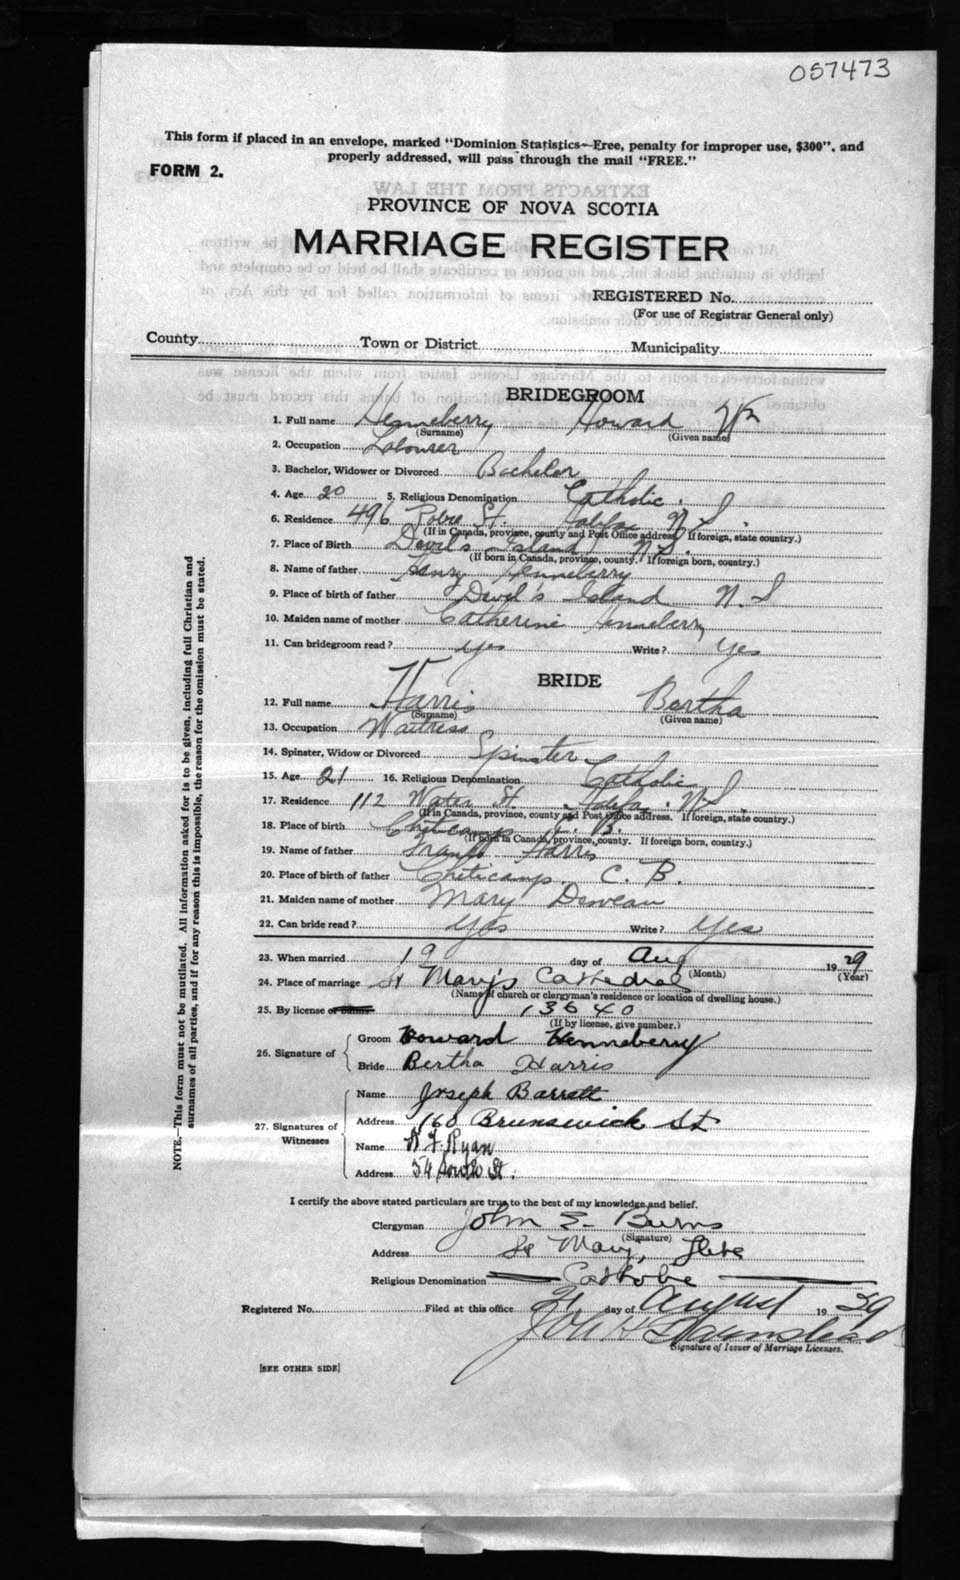 057473
This form if placed in an envelope, marked "Dominion Statistics—Free, penalty for improper use, $300", and
properly addressed, will pass through the mail "FREE."
FORM 2.
PROVINCE OF NOVA SCOTIA
MARRIAGE REGISTER
REGISTERED No.
(For use of Registrar General only)
County Town or District Municipality
BRIDEGROOM
1. Full name Henneberry Howard Wm
(Surname) (Given name)
2. Occupation Labourer
3. Bachelor, Widower or Divorced Bachelor
4. Age 20 5. Religious Denomination Catholic.
6. Residence 496 Robie St. Halifax N.S.
(If in Canada, province, county and Post Office address. If foreign, state country.)
7. Place of Birth Devil's Island N.S.
(If born in Canada, province, county. If foreign born, country.)
8. Name of father Henry Henneberry
9. Place of birth of father Devil's Island N.S
10. Maiden name of mother Catherine Henneberry
11. Can bridegroom read? yes Write? yes
BRIDE
12. Full name Harris Bertha
(Surname) (Given name)
13. Occupation Waitress
14. Spinster, Widow or Divorced Spinster
15. Age 21 16. Religious Denomination Catholic
17. Residence 112 Water St. Halifax. N.S.
(If in Canada, province, county and Post Office address. If foreign, state country.)
18. Place of birth Cheticamp C. B.
(If born in Canada, province, county. If foreign born, country.)
19. Name of father Frank Harris
20. Place of birth of father Cheticamp C. B.
21. Maiden name of mother Mary Deveau
22. Can bride read? yes Write? yes
23. When married 19 day of Aug 19 29
(Month) (Year)
24. Place of marriage St Mary's Cathedral
(Name of church or clergyman's residence or location of dwelling house.)
25. By license or banns 13640
(If by license, give number.)
26. Signature of
Groom Howard Henneberry
Bride Bertha Harris
27. Signatures of Witnesses
Name Joseph Barrett
Address 160 Brunswick St
Name W F. Ryan
Address 54 South St.
I certify the above stated particulars are true to the best of my knowledge and belief.
Clergyman John E. Burns
(Signature)
Address St Mary, Glebe
Religious Denomination Catholic
Registered No. Filed at this office 21 day of August 19 29
John H
Signature of Issuer of Marriage Licenses.
[SEE OTHER SIDE]
NOTE.—This form must not be mutilated. All information asked for is to be given, including full Christian and
surnames of all parties, and if for any reason this is impossible, the reason for the omission must be stated.